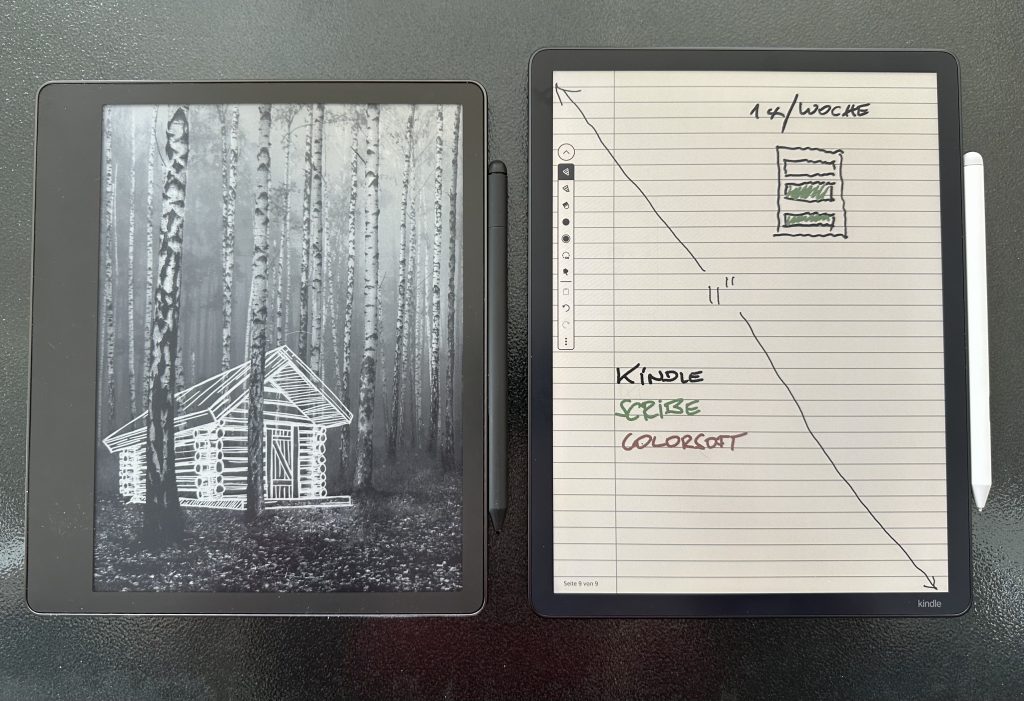 1x/WOCHE
11"
KINDLE
SCRIBE
COLORSOFT
Seite 9 von 9
kindle